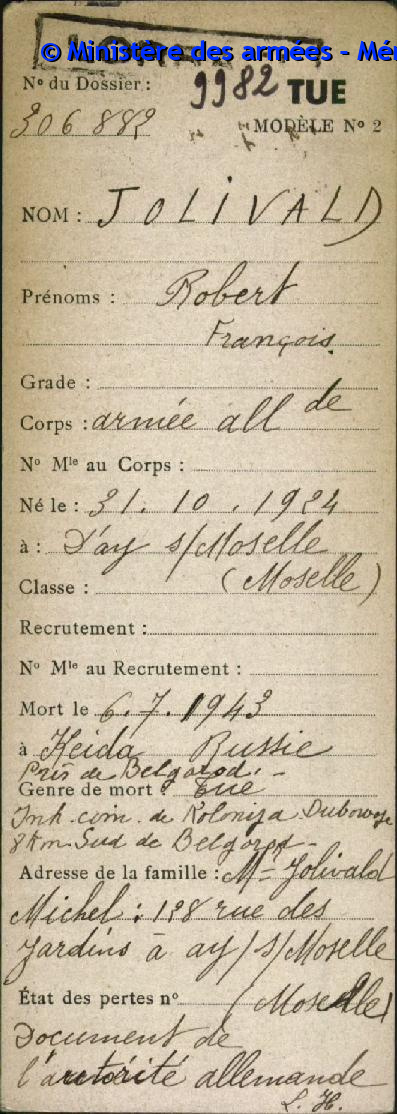 © Ministère des armées - Mém
N° du Dossier :
9982 TUE
306 882
MODÈLE N° 2
NOM : JOLIVALD
Prénoms : Robert
François
Grade :
Corps : armée all de
N° Mle au Corps :
Né le : 31. 10. 1924
à : D'ay s/Moselle
(Moselle)
Classe :
Recrutement :
N° Mle au Recrutement :
Mort le 6. 7. 1943
à Keida Russie
Près de Belgorod. -
Genre de mort : Tué
Ink. com. de Koloniza Dubowoje
8 Km Sud de Belgorod -
Adresse de la famille : Mr Jolivald
Michel : 128 rue des
Jardins à ay/s/Moselle
(Moselle)
État des pertes n°
Document de
l'autorité allemande
L. H.